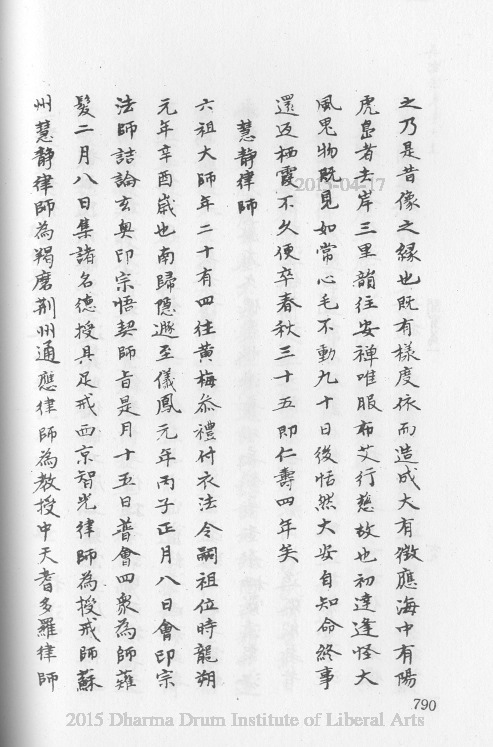 之乃是昔像之緣也既有樣度依而造成大有徵應海中有陽
虎島者去岸三里韻往安禪唯服布艾行慈故也初達逢怪大
風鬼物既見如常心毛不動九十日後恬然大安自知命終事
還返栖霞不久便卒春秋三十五即仁壽四年矣
慧靜律師
六祖大師年二十有四往黃梅叅禮付衣法令嗣祖位時龍朔
元年辛酉歲也南歸隱遯至儀鳳元年丙子正月八日會印宗
法師詰論玄奧印宗悟契師旨是月十五日普會四衆為師薙
髮二月八日集諸名德授具足戒西京智光律師為授戒師蘇
州慧靜律師為羯磨荊州通應律師為教授中天耆多羅律師
790
2015-04-17
2015 Dharma Drum Institute of Liberal Arts